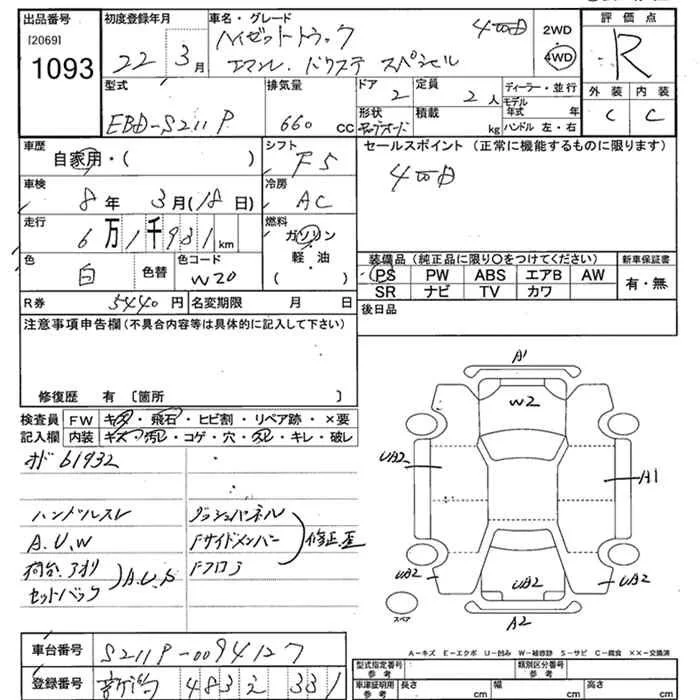 出品番号
[2069]
1093
初度登録年月
22年3月
車名・グレード
ハイゼットトラック
4WD
2WD
4WD
評価点
R
外装 内装
C C
型式
EBD-S211P
排気量
660 cc
ドア
2
定員
2人
形状
積載
kg
ディーラー・並行
モデル年式 年
ハンドル 左・右
車歴
自家用・( )
シフト
F5
セールスポイント (正常に機能するものに限ります)
車検
8年 3月(18日)
冷房
AC
走行
6万1千931km
燃料
ガソリン
軽・油
( )
色
白
色替
色コード
W20
装備品 (純正品に限り○をつけてください)
PS PW ABS エアB AW
SR ナビ TV カワ
新車保証書
有・無
R券
5440円
名変期限 月 日
後日品
注意事項申告欄(不具合内容等は具体的に記入して下さい)
修復歴 有 〔箇所 〕
検査員記入欄
FW キズ・飛石・ヒビ割・リペア跡・×要
内装 キズ・汚れ・コゲ・穴・ ・キレ・破レ
オド 61932
ハンドルスレ
A.U.W
荷台、アオリ
セットバック
A.U.S
ダッシュパネル
Fサイドメンバー
Fフロア
修正、歪
A1
W2
UA2
A1
UA2
UA2
UA2
A2
スペア
A-キズ E-エクボ U-凹み W-補修跡 S-サビ C-腐食 ××-交換済
車台番号
S211P-0094127
登録番号
新潟 483 え 331
型式指定番号 参考
類別区分番号 参考
車庫証明用 参考
長さ cm
幅 cm
高さ cm